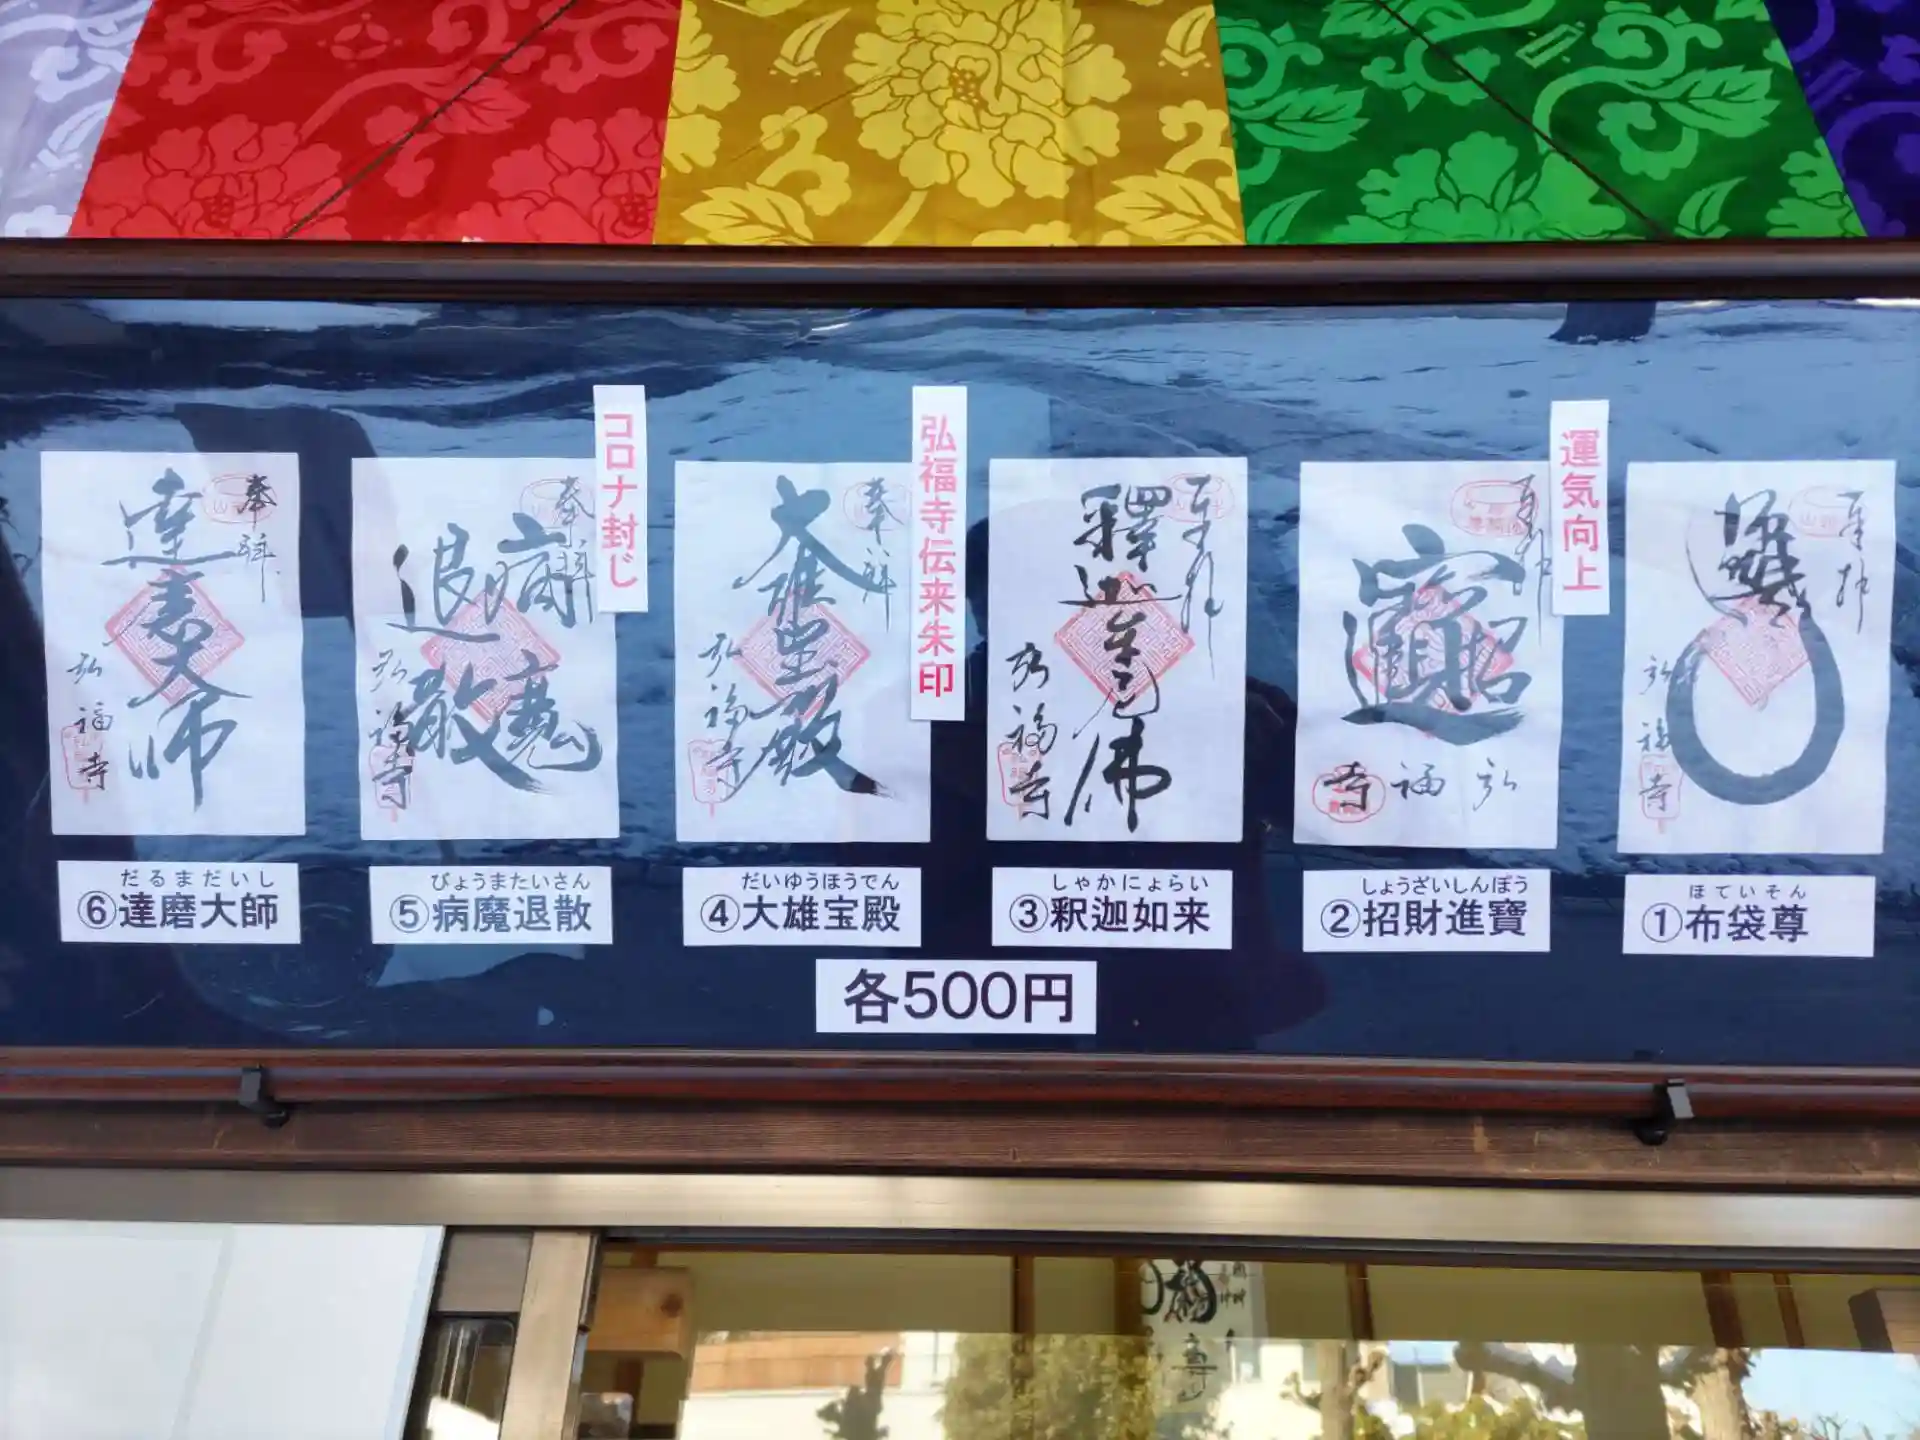 運気向上
弘福寺伝来朱印
コロナ封じ
奉拝
釋迦牟尼佛
弘福寺
奉拝
大雄宝殿
弘福寺
奉拝
病魔退散
弘福寺
奉拝
達磨大師
弘福寺
弘福寺
弘福寺
ほていそん
①布袋尊
しょうざいしんぽう
②招財進寶
しゃかにょらい
③釈迦如来
だいゆうほうでん
④大雄宝殿
びょうまたいさん
⑤病魔退散
だるまだいし
⑥達磨大師
各500円